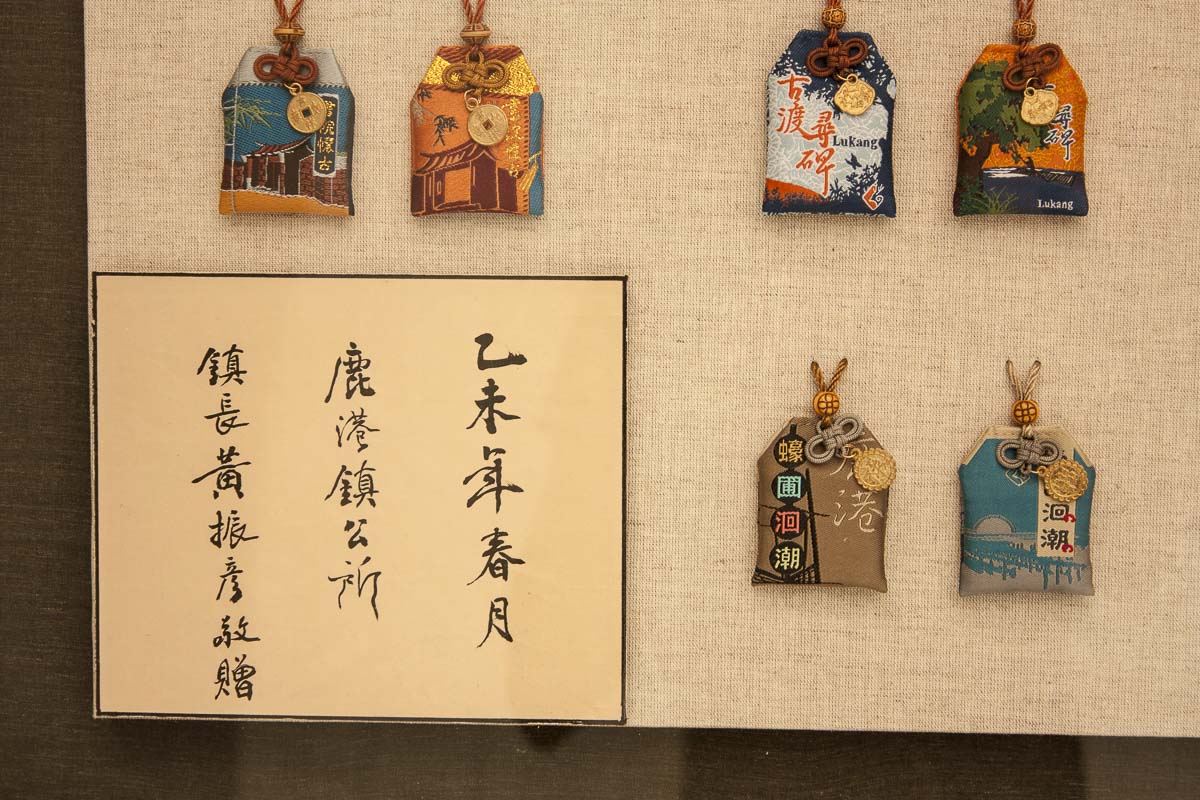 書院懷古
書院懷古
古渡
尋碑
Lukang
尋碑
Lukang
乙未年春月
鹿港鎮公所
鎮長黃振彥敬贈
蠔圃洄潮
港
洄潮